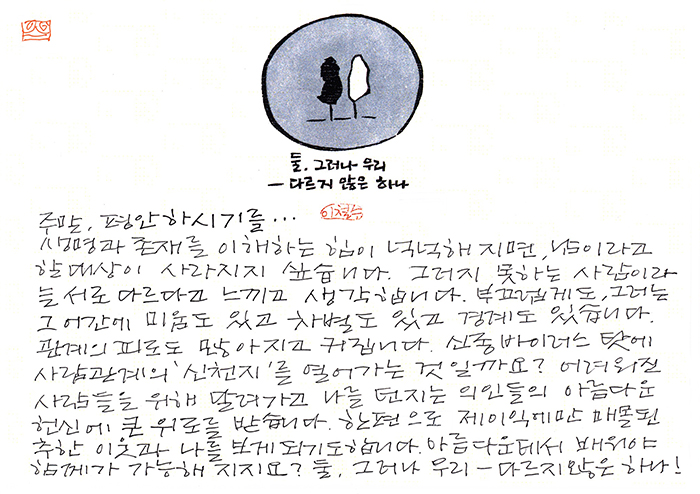 둘, 그러나 우리
— 다르지 않은 하나
주말, 평안하시기를 ...
이철수
생명과 존재를 이해하는 힘이 넉넉해 지면, 남이라고
할 대상이 사라지지 싶습니다. 그러지 못하는 사람이라
늘 서로 다르다고 느끼고 생각합니다. 부끄럽게도, 그러는
그 어간에 미움도 있고 차별도 있고 경계도 있습니다.
관계의 피로도 많아지고 커집니다. 신종바이러스 탓에
사람관계의 '신천지'를 열어가는 것일까요? 어려워진
사람들을 위해 달려가고 나를 던지는 의인들의 아름다운
헌신에 큰 위로를 받습니다. 한편으로 제 이익에만 매몰된
추한 이웃과 나를 보게 되기도합니다. 아름다운데서 배워야
함께가 가능해 지지요? 둘, 그러나 우리 — 다르지않은 하나!